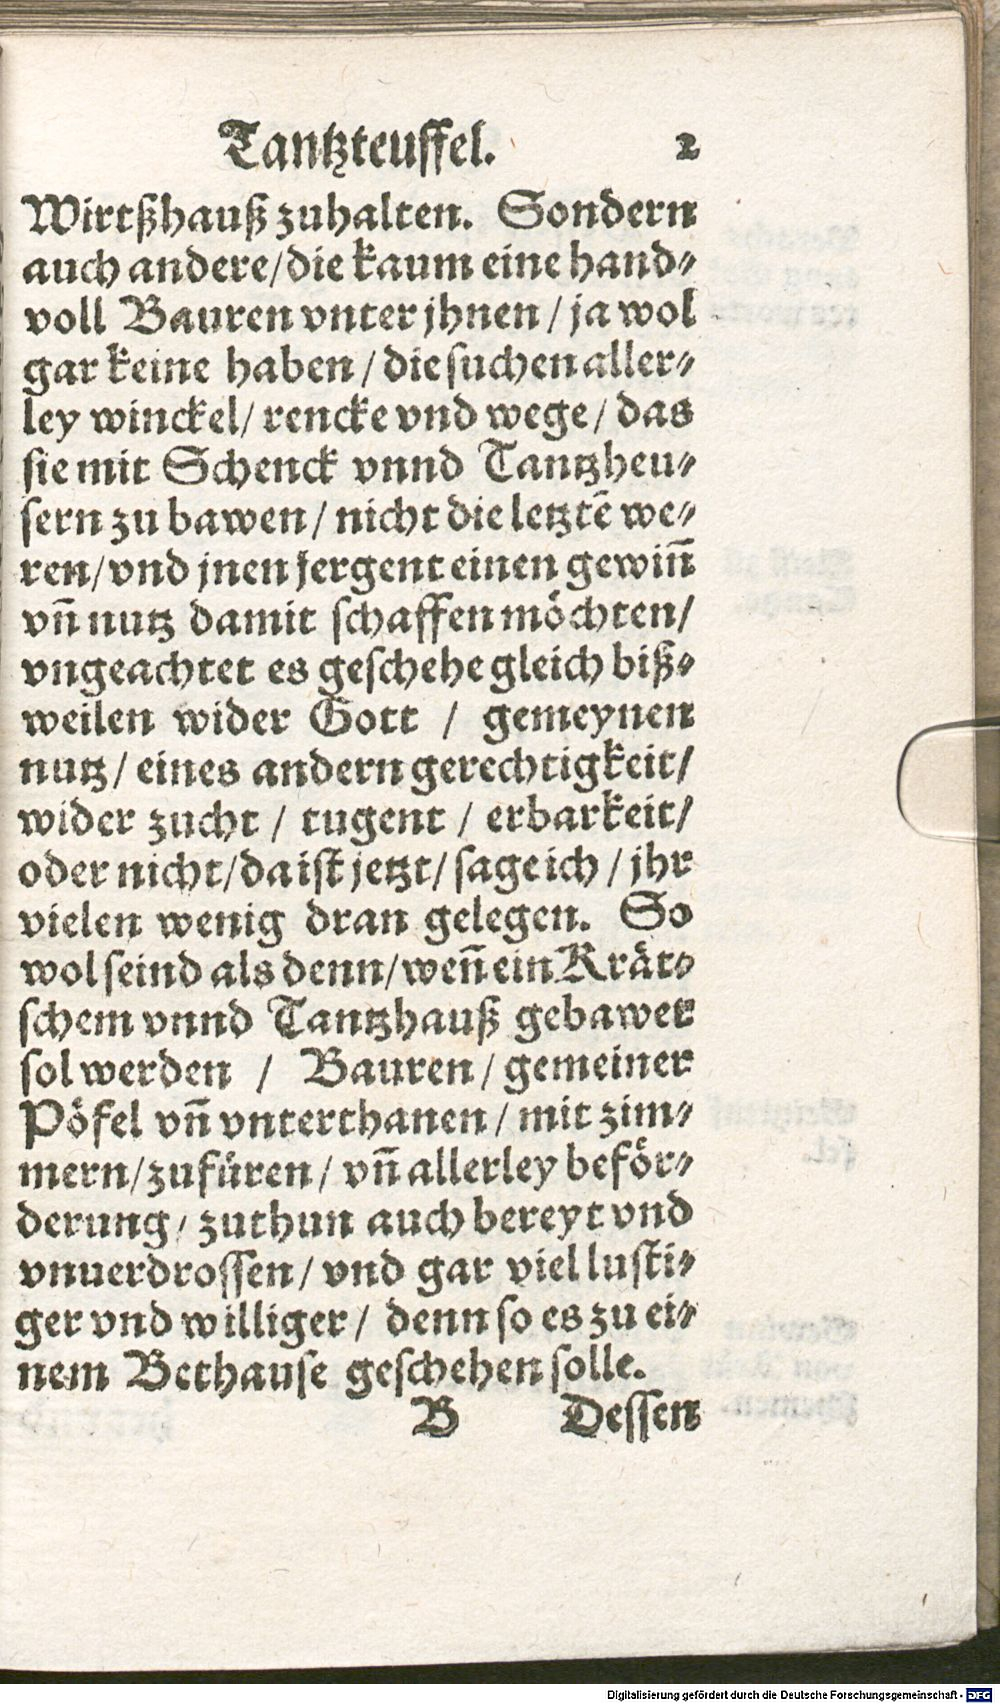 Tantzteuffel. 2
Wirtßhauß zuhalten. Sondern
auch andere/die kaum eine hand⸗
voll Bauren vnter jhnen / ja wol
gar keine haben / die suchen aller⸗
ley winckel/ rencke vnd wege / das
sie mit Schenck vnnd Tantzheu⸗
sern zu bawen / nicht die letztẽ we⸗
ren/vnd jnen jergent einen gewiñ
vñ nutz damit schaffen möchten/
vngeachtet es geschehe gleich biß⸗
weilen wider Gott / gemeynen
nutz / eines andern gerechtigkeit/
wider zucht / tugent / erbarkeit/
oder nicht/da ist jetzt/ sage ich / jhr
vielen wenig dran gelegen. So
wol seind als denn/ weñ ein Krät⸗
schem vnnd Tantzhauß gebawet
sol werden / Bauren / gemeiner
Pöfel vñ vnterthanen / mit zim⸗
mern/zufüren / vñ allerley beför⸗
derung/ zuthun auch bereyt vnd
vnuerdrossen / vnd gar viel lusti⸗
ger vnd williger / denn so es zu ei⸗
nem Bethause geschehen solle.
B Dessen
Digitalisierung gefördert durch die Deutsche Forschungsgemeinschaft - DFG